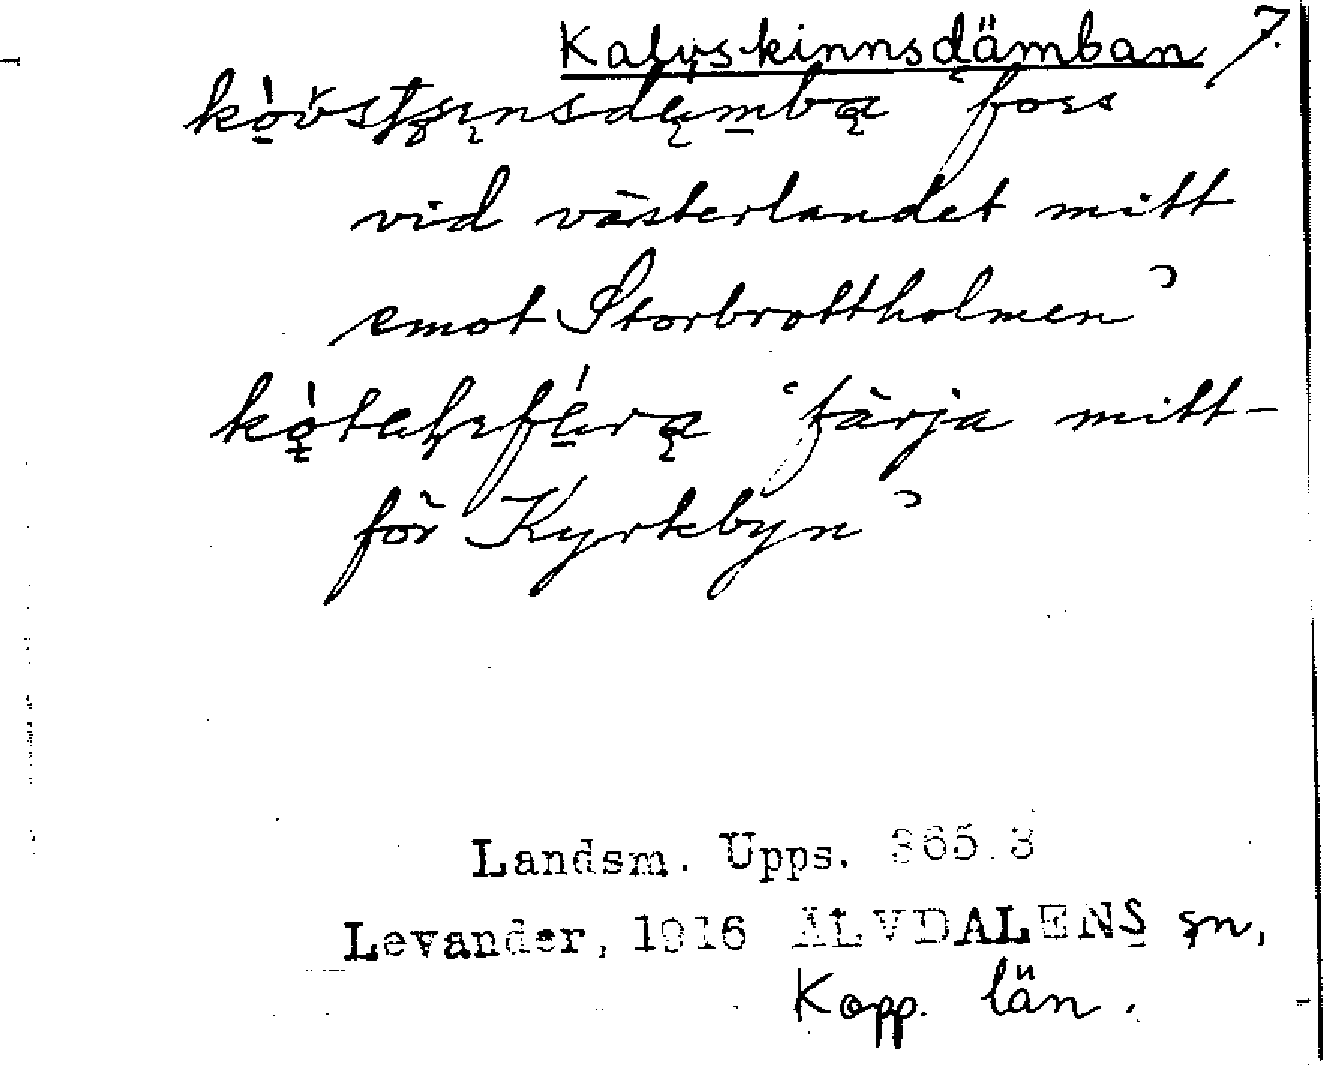 Kalvskinnsdämban 7.
‘fors
vid västerlandet mitt
emot Storbrottholmen’
‘färja mitt-
för Kyrkbyn’
Landsm. Upps. 365.3
Levander, 1916 ÄLVDALENS sn,
Kopp. län.